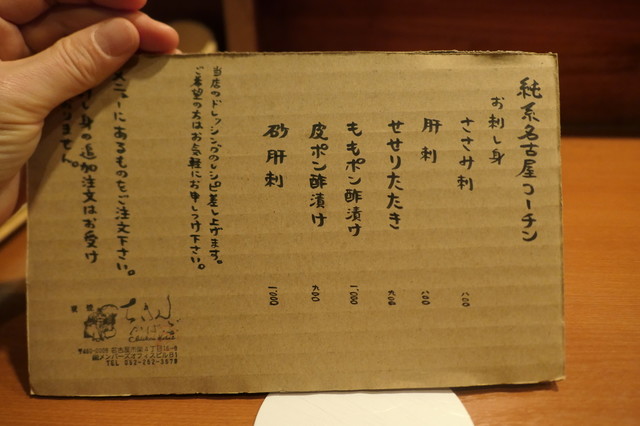 純系名古屋コーチン
お刺し身
ささみ刺 八〇〇
肝刺 八〇〇
せせりたたき 九〇〇
ももポン酢漬け 一、〇〇〇
皮ポン酢漬け 九〇〇
砂肝刺 一、〇〇〇
当店のドレッシングのレシピ差し上げます。
ご希望の方はお気軽にお申しつけ下さい。
メニューにあるものをご注文下さい。
刺し身の追加注文はお受け
りません。